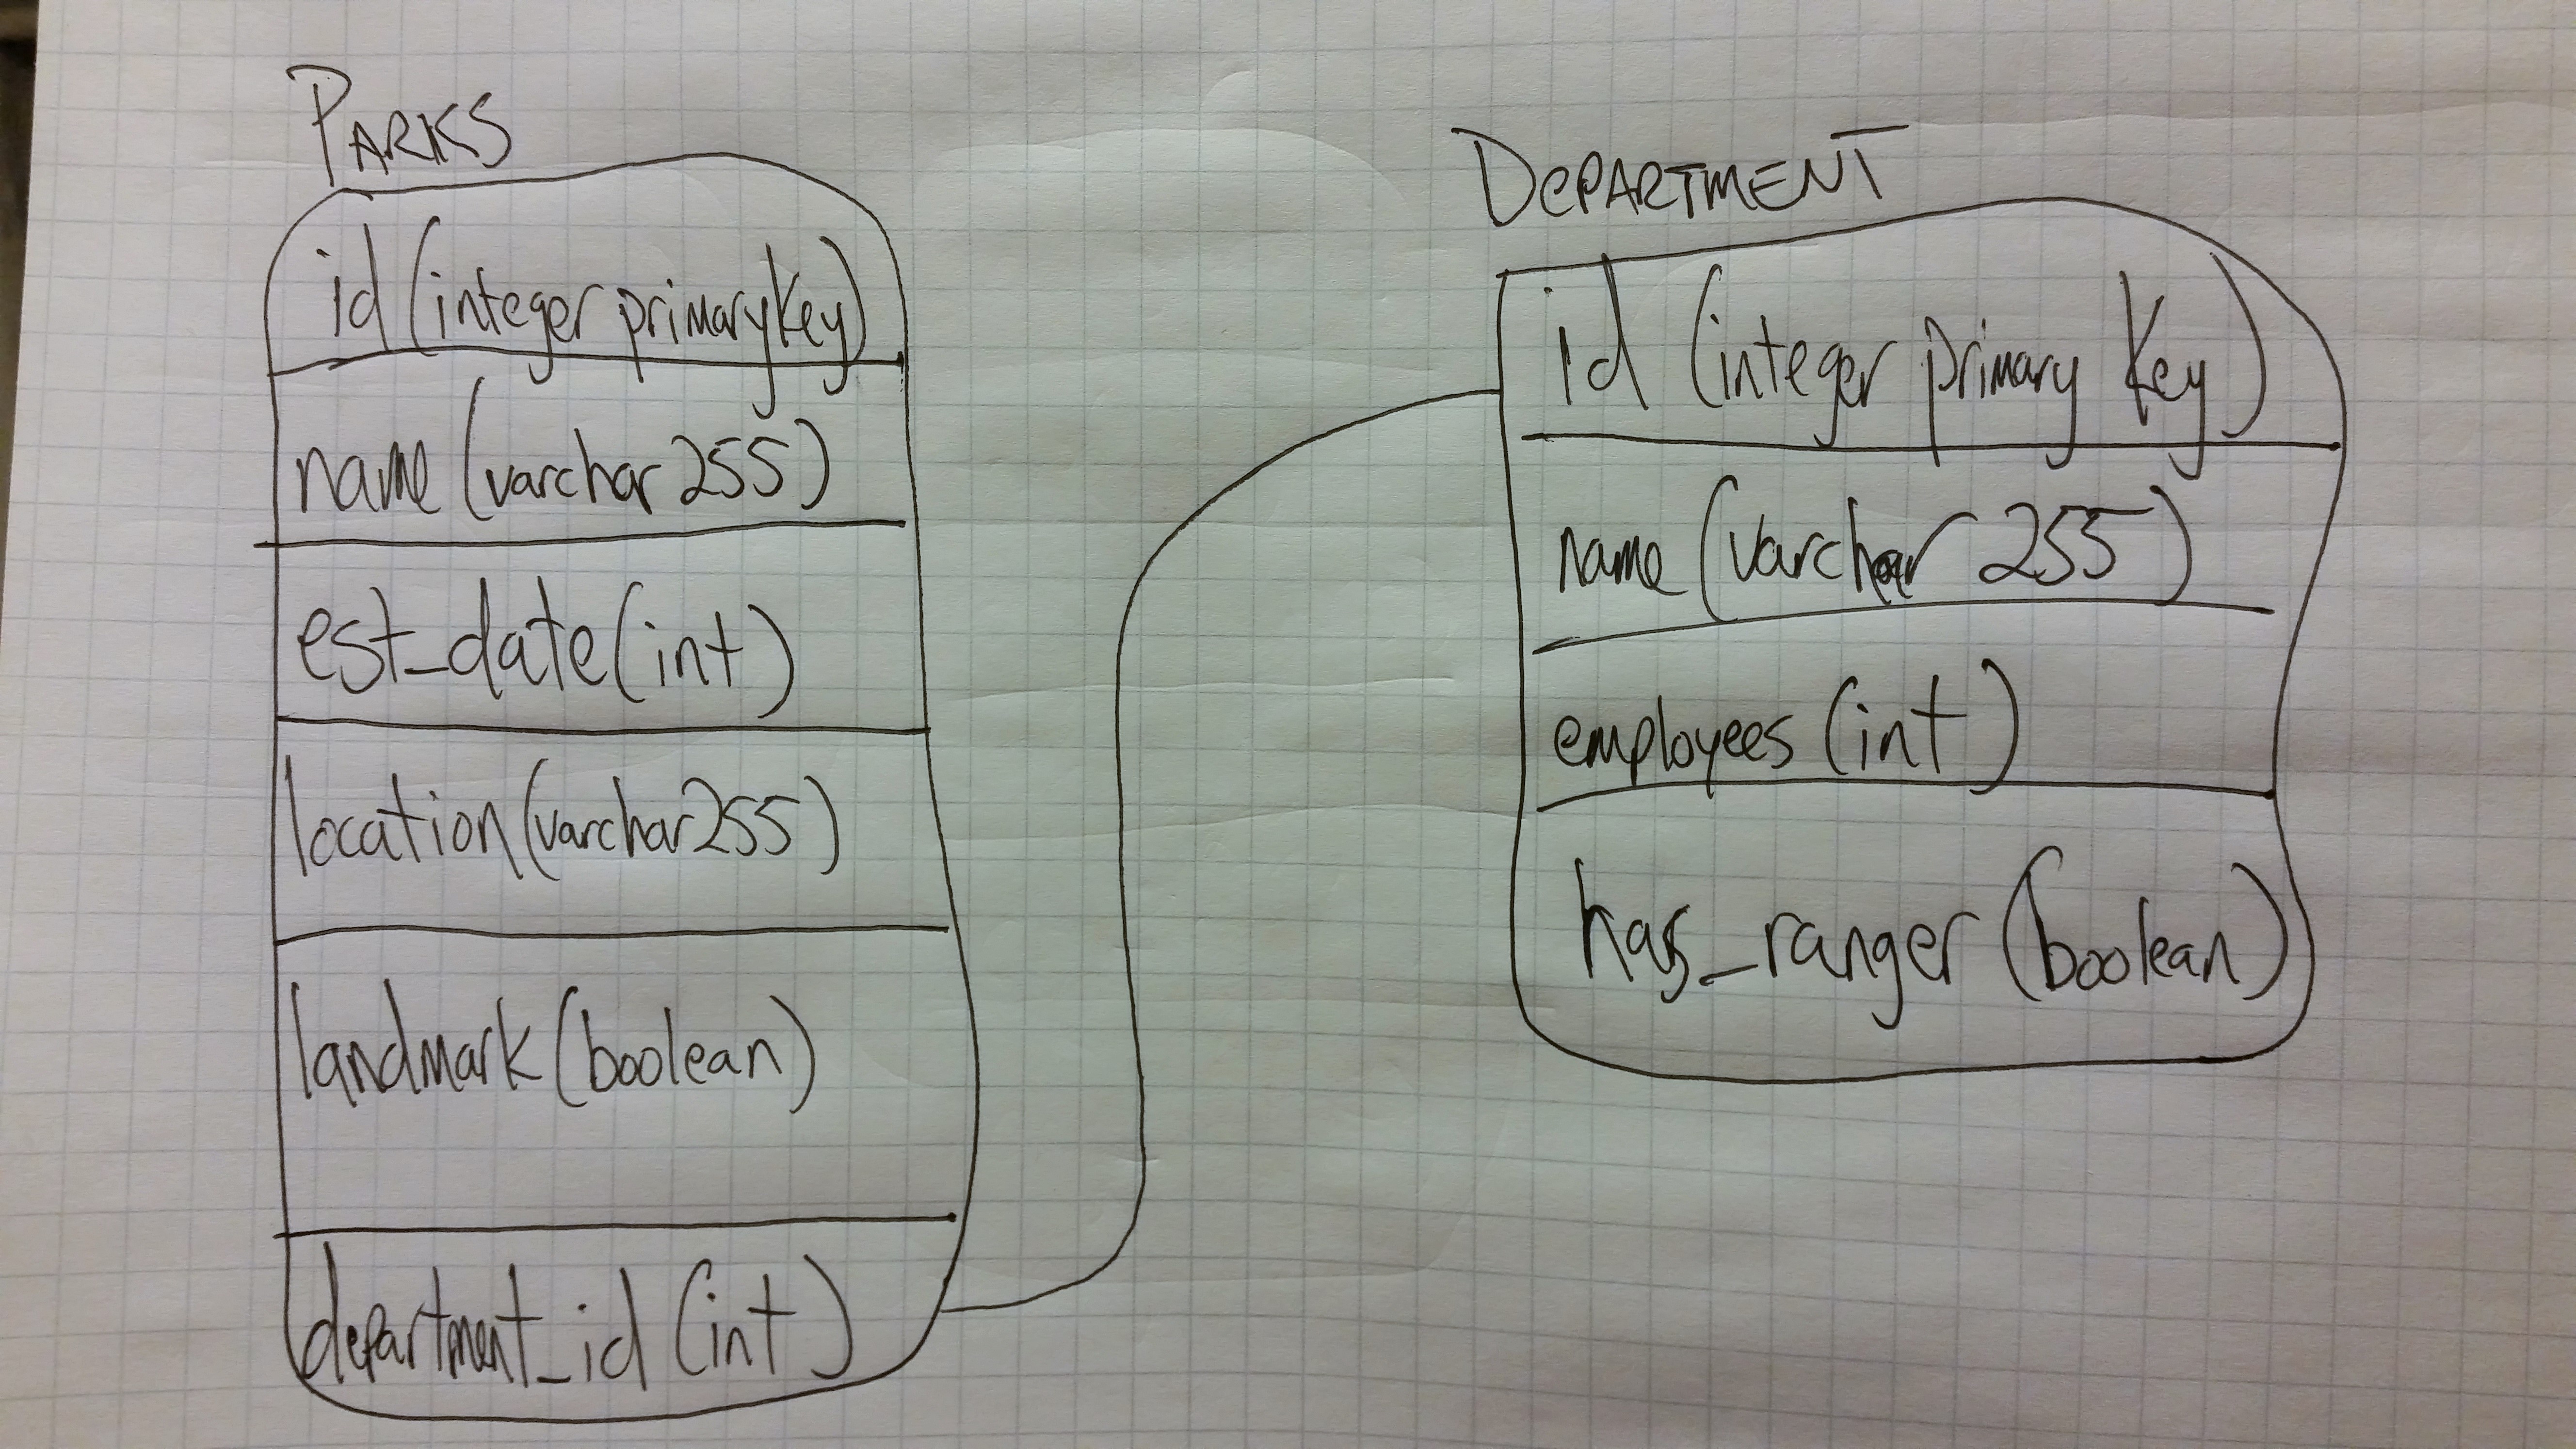 PARKS
id (integer primary key)
name (varchar 255)
est_date (int)
location (varchar 255)
landmark (boolean)
department_id (int)
DEPARTMENT
id (integer primary key)
name (varchar 255)
employees (int)
has_ranger (boolean)